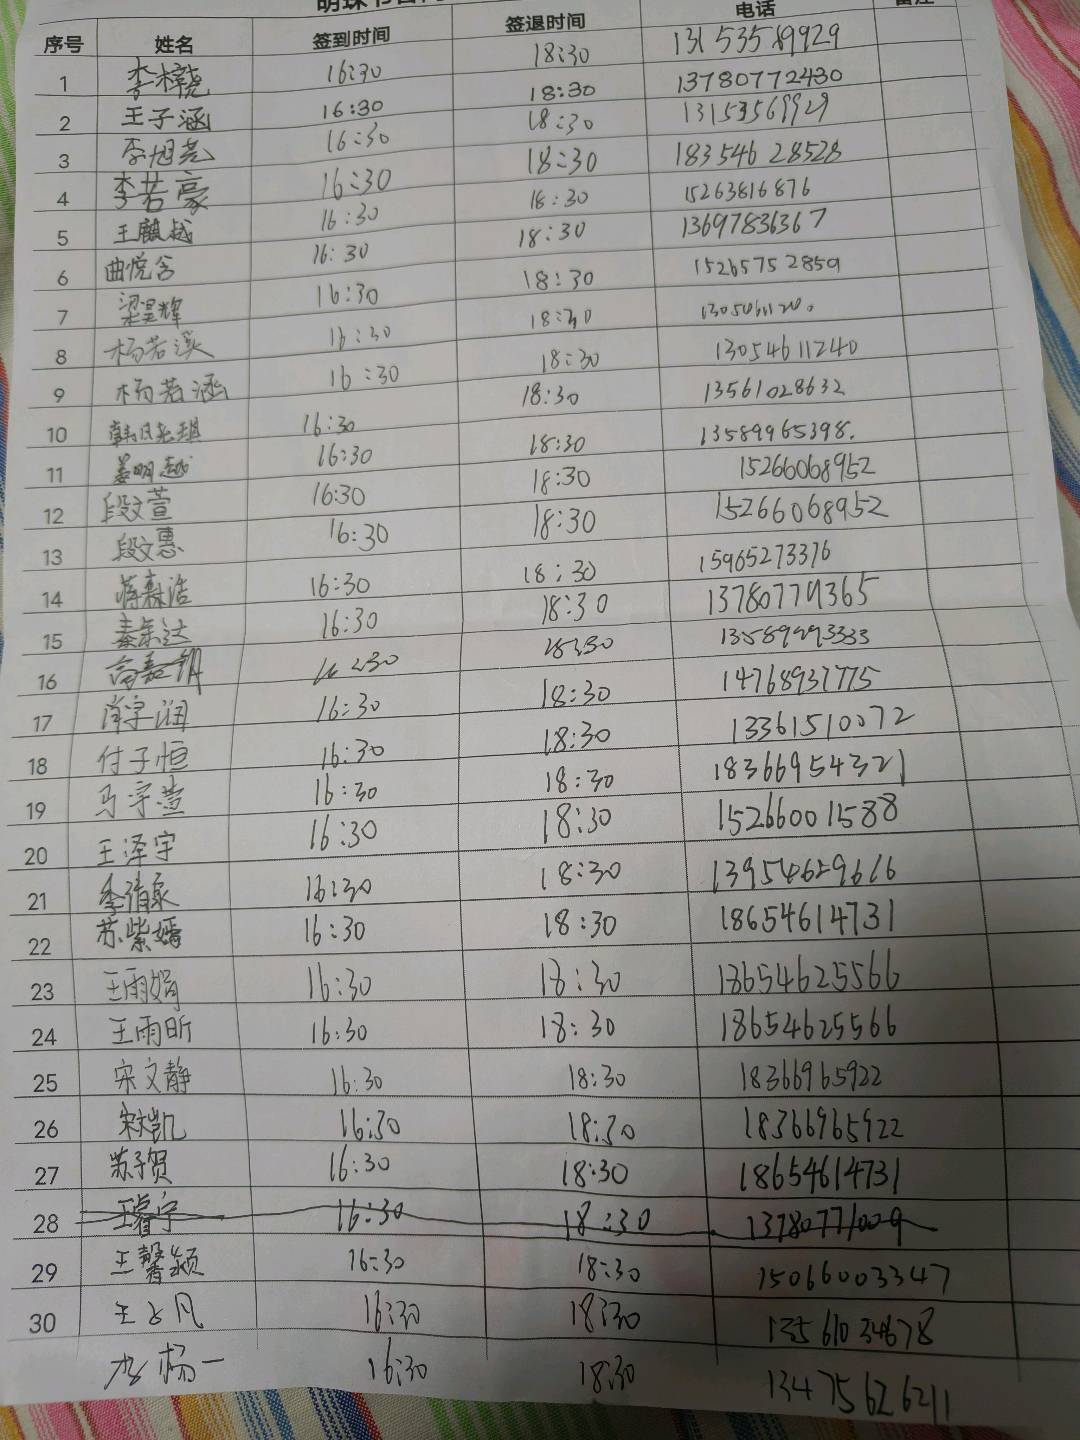 序号 姓名 签到时间 签退时间 电话 备注
1 李梓尧 16:30 18:30 13153589929
2 王子涵 16:30 18:30 13780772430
3 李旭尧 16:30 18:30 13153569929
4 李若豪 16:30 18:30 183546 28528
5 王麒越 16:30 18:30 15263816876
6 曲悦含 16:30 18:30 13697836367
7 梁昊辉 16:30 18:30 15265752859
8 杨若溪 16:30 18:30
9 杨若涵 16:30 18:30 13054611240
10 16:30 18:30 13561028632
11 姜明越 16:30 18:30 13589965398.
12 段文萱 16:30 18:30 15266068952
13 段文惠 16:30 18:30 15266068952
14 蒋森浩 16:30 18:30 15965273376
15 秦东达 16:30 18:30 13780779365
16 16:30 18:30 13589993333
17 肖宇润 16:30 18:30 14768937775
18 付子恒 16:30 18:30 13361510072
19 马宇萱 16:30 18:30 18366954321
20 王泽宇 16:30 18:30 15266001588
21 李清泉 16:30 18:30 13954629616
22 苏紫嫣 16:30 18:30 18654614731
23 王雨娟 16:30 18:30 18654625566
24 王雨昕 16:30 18:30 18654625566
25 宋文静 16:30 18:30 18366965922
26 宋文凯 16:30 18:30 18366965922
27 苏子贺 16:30 18:30 18654614731
28 王睿宁 16:30 18:30 13780771009
29 王馨颍 16:30 18:30 15066003347
30 王子凡 16:30 18:30 13561034678
李杨一 16:30 18:30 13475626211